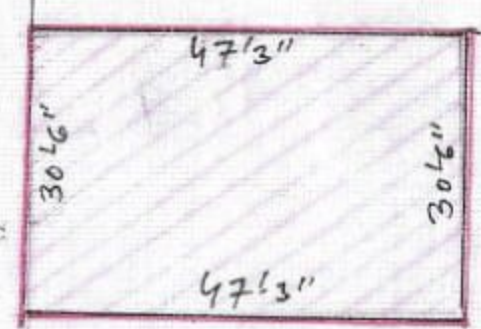 47'3"
30'6"
30'6"
47'3"